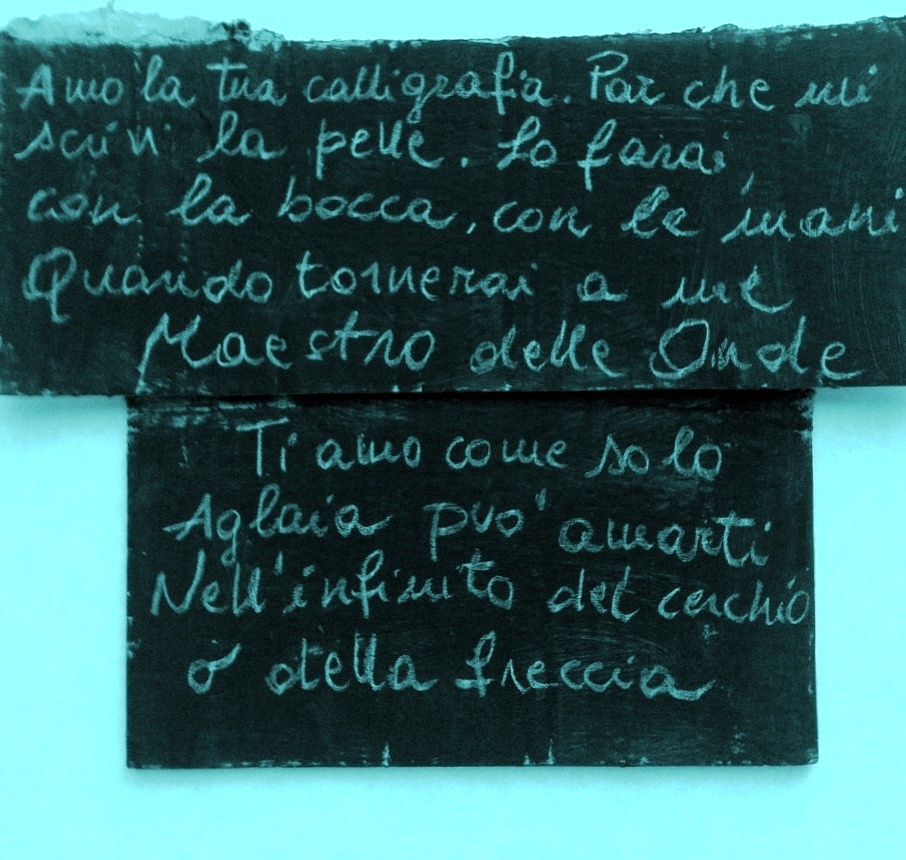 Amo la tua calligrafia. Par che mi
scrivi la pelle. Lo farai
con la bocca, con le mani
Quando tornerai a me
Maestro delle Onde
Ti amo come solo
Aglaia può amarti
Nell'infinito del cerchio
o della freccia